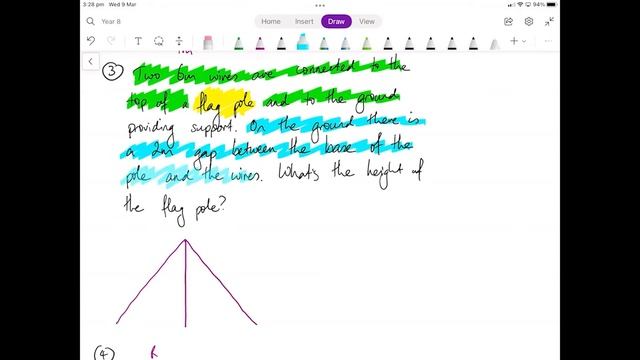 3:28 pm Wed 9 Mar
94%
Year 8
Home Insert Draw View
3 Two 6m wires are connected to the
top of a flag pole and to the ground
providing support. On the ground there is
a 2m gap between the base of the
pole and the wires. What's the height of
the flag pole?
(4)